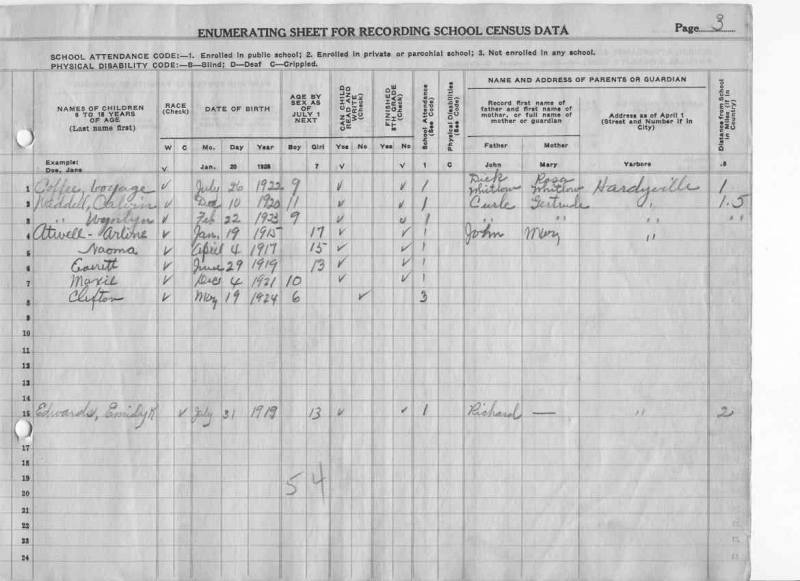 ENUMERATING SHEET FOR RECORDING SCHOOL CENSUS DATA Page 3
SCHOOL ATTENDANCE CODE:—1. Enrolled in public school; 2. Enrolled in private or parochial school; 3. Not enrolled in any school.
PHYSICAL DISABILITY CODE:—B—Blind; D—Deaf C—Crippled.
NAMES OF CHILDREN
6 TO 18 YEARS
OF AGE
(Last name first)
RACE
(Check)
W C
DATE OF BIRTH
Mo. Day Year
AGE BY
SEX AS
OF
JULY 1
NEXT
Boy Girl
CAN CHILD
READ AND
WRITE
(Check)
Yes No
FINISHED
8TH GRADE
(Check)
Yes No
School Attendance
(See Code)
Physical Disabilities
(See Code)
NAME AND ADDRESS OF PARENTS OR GUARDIAN
Record first name of
father and first name of
mother, or full name of
mother or guardian
Father Mother
Address as of April 1
(Street and Number if in
City)
Distance from School
in Miles (if in
Country)
Example:
Doe, Jane V Jan. 20 1925 7 V V 1 C John Mary Yarboro .5
Dick Rosa
1 Coffee, ✓ July 26 1922 9 ✓ ✓ 1 Whitlow Whitlow Hardyville 1
2 Waddell, Calvin ✓ Dec 10 1920 11 ✓ ✓ 1 Curle Gertrude " 1.5
3 " ✓ Feb 22 1923 9 ✓ ✓ 1 " " " "
4 Atwell - Arline ✓ Jan. 19 1915 17 ✓ ✓ 1 John Mary "
5 Naoma ✓ April 4 1917 15 ✓ ✓ 1
6 Everett ✓ June 29 1919 13 ✓ ✓ 1
7 Maxie ✓ Dec 4 1921 10 ✓ ✓ 1
8 Clifton ✓ May 19 1924 6 ✓ 3
9
10
11
12
13
14
15 Edwards, Emidy R ✓ July 31 1919 13 ✓ ✓ 1 Richard — " 2
17
18
19
54
20
21
22
23
24